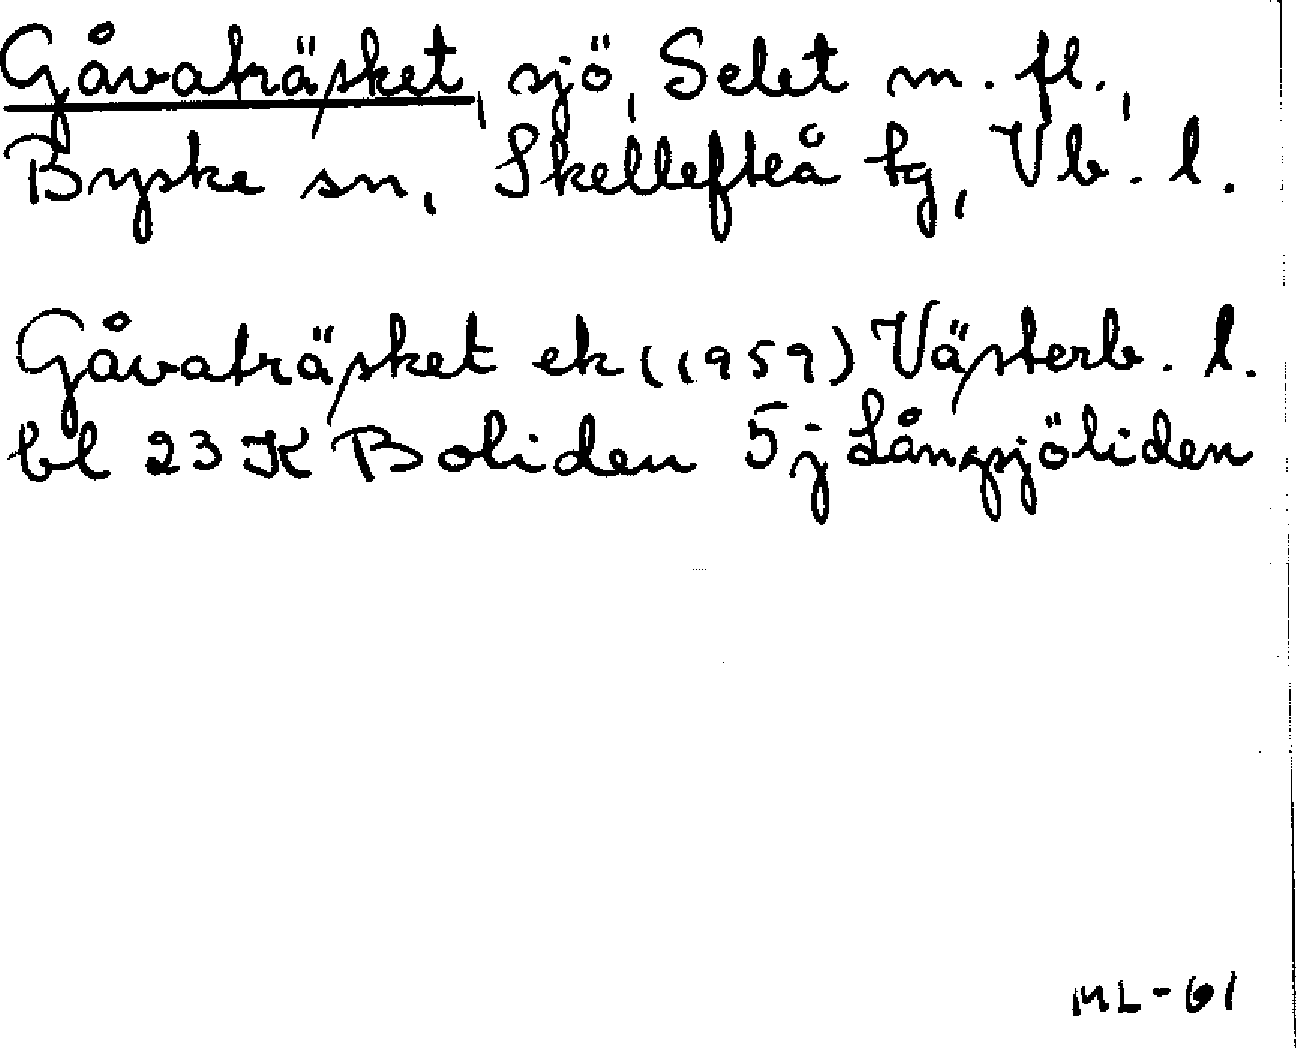 Gåvaträsket, sjö, Selet m. fl.,
Byske sn, Skellefteå tg, Vb. l.
Gåvaträsket ek (1959) Västerb. l.
bl 23 K Boliden 5 j Långsjöliden
ML-61